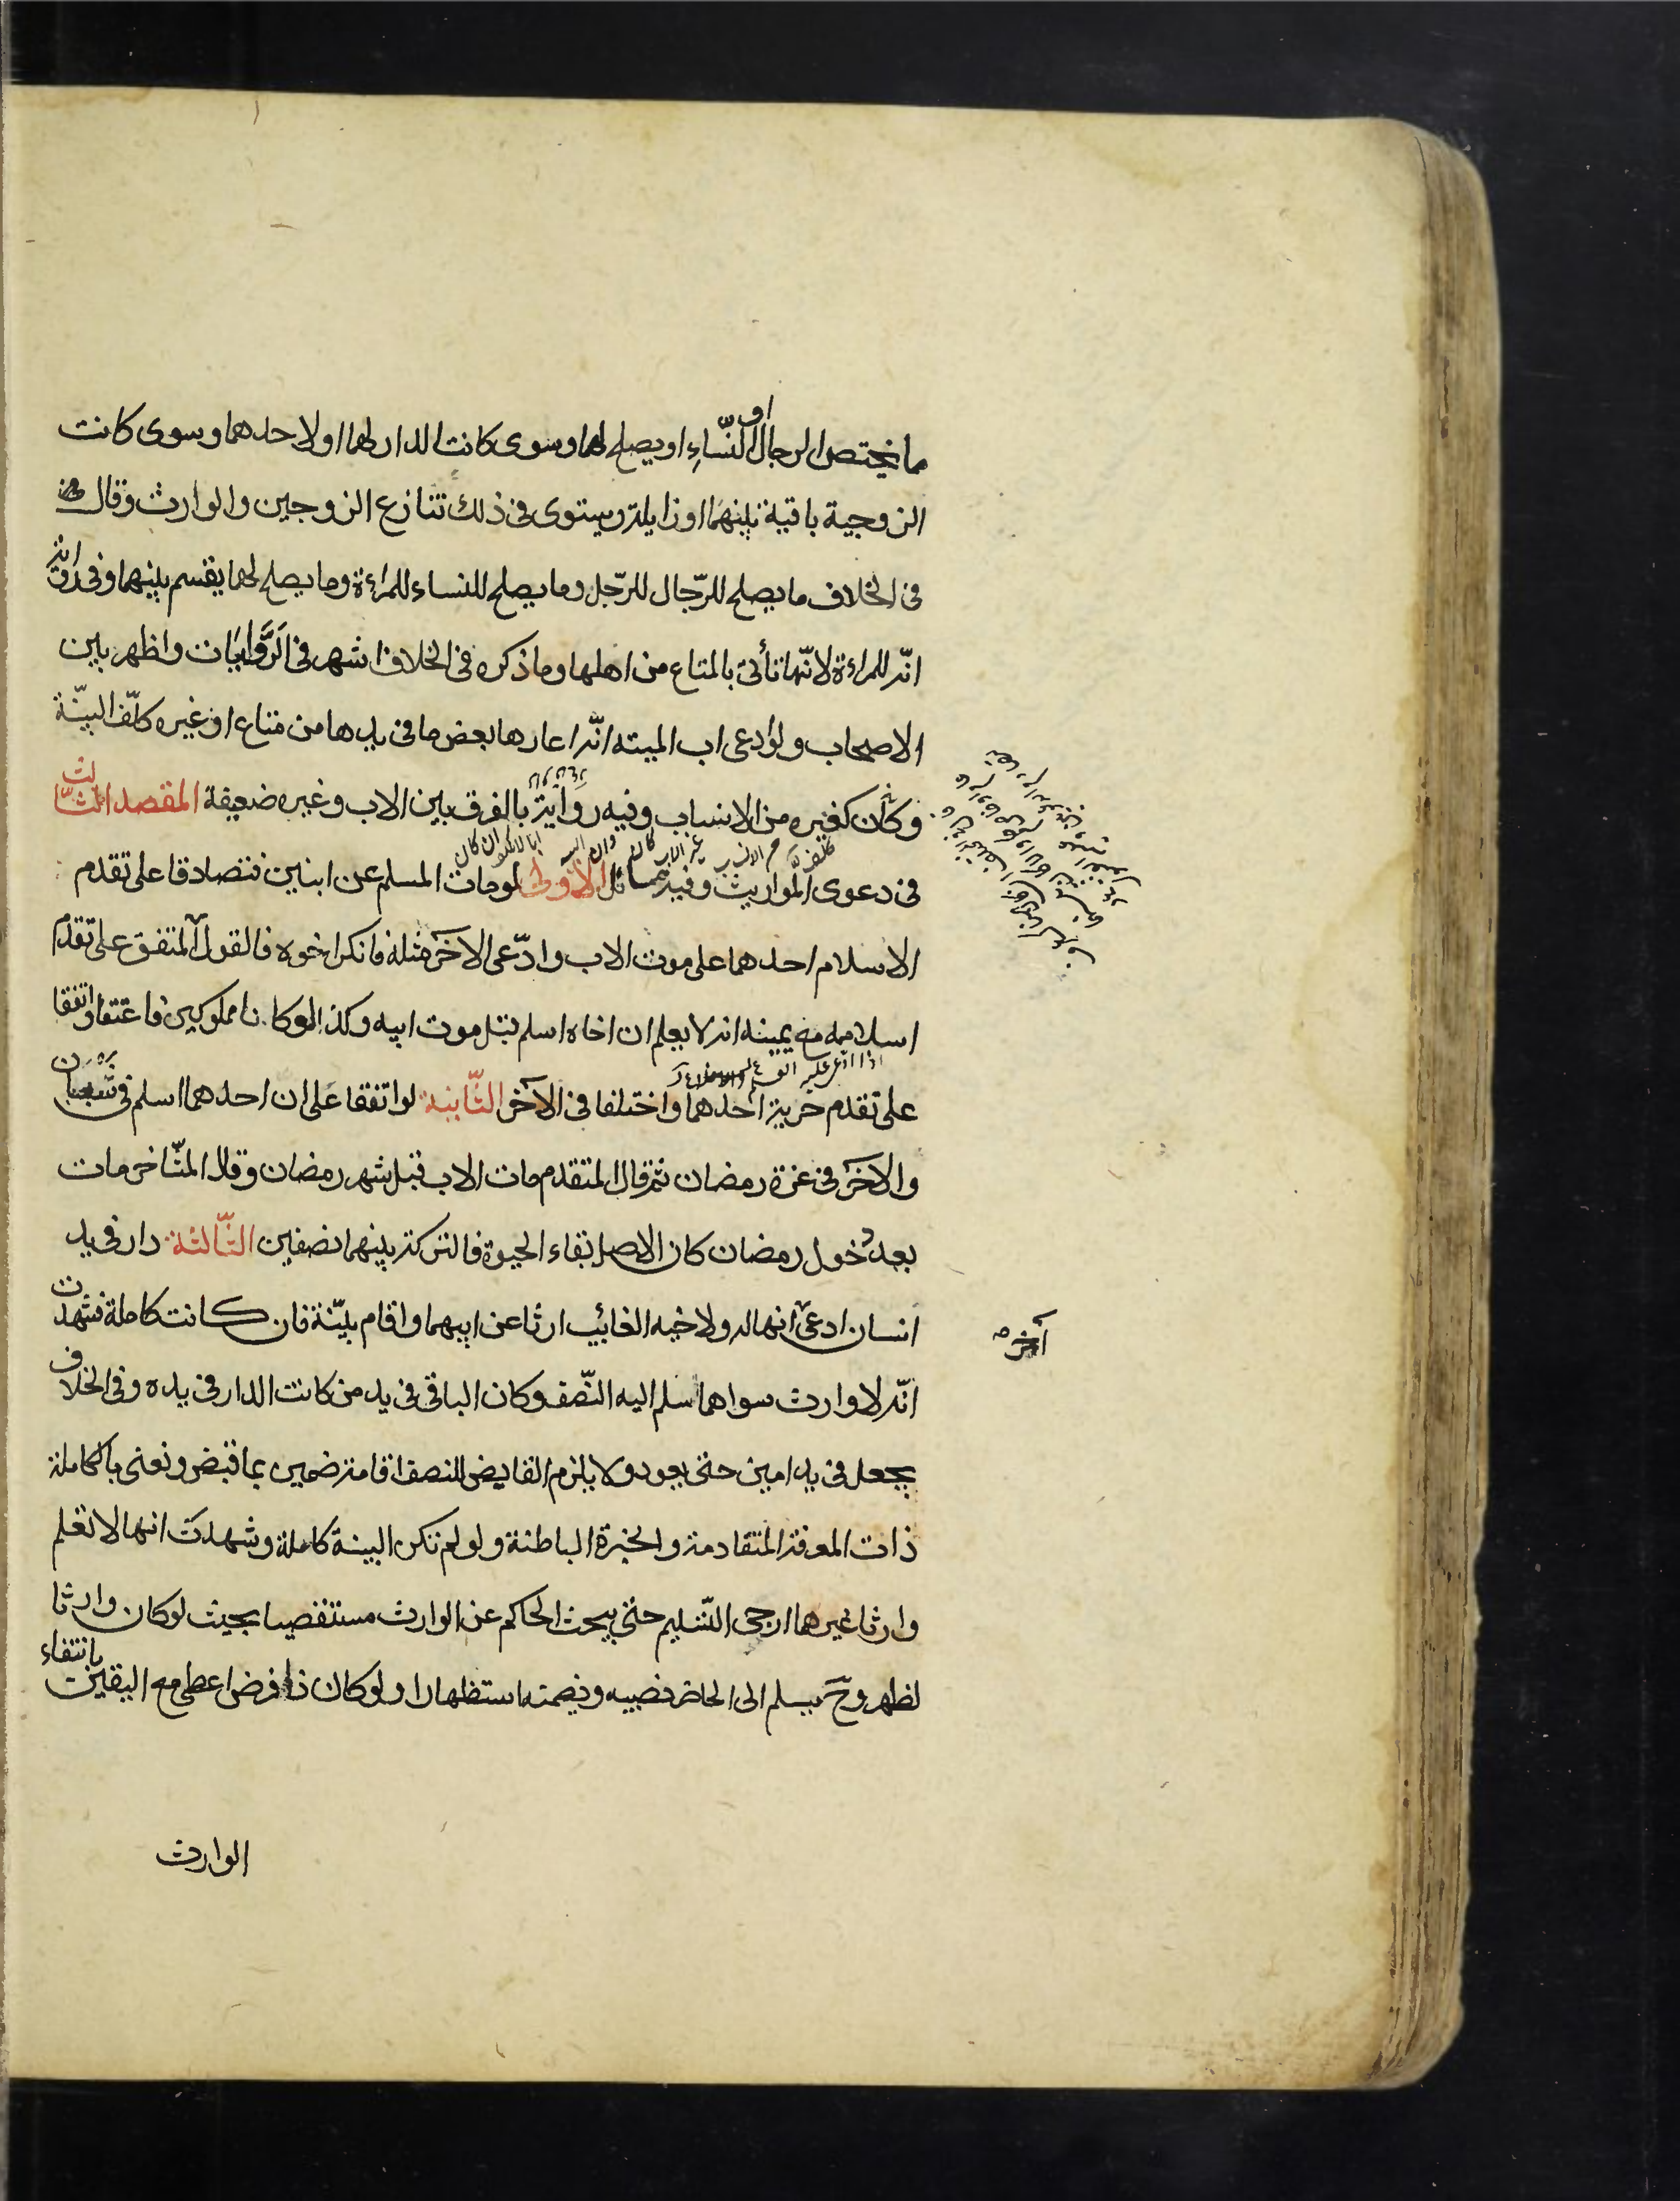 ما يختص الرجال او النّساءِ او يصلح لهما وسوى كانت الدار لهما او لاحدهما وسوى كانت
الزوجية باقية بينهما او زايلة ويستوى فى ذلك تنازع الزوجين والوارث وقال
فى الخلاف ما يصلح للرّجال للرّجل وما يصلح للنساء للمراءة وما يصلح لهما يقسم بينهما وفى رواية
انّه للمراءة لانّها تأتى بالمتاع من اهلها وما ذكره فى الخلاف اشهر فى الرّوايات واظهر بين
الاصحاب ولو ادعى اب الميته انّه اعارها بعض ما فى يدها من متاع او غيره كلّف البيّنة
وكان كغيره من الانساب وفيه رواية بالفرق بين الاب وغيره ضعيفة المقصد الثّالث
فى دعوى المواريث وفيه مسائل الاولى لو مات المسلم عن ابنين فتصادقا على تقدم
الاسلام احدهما على موت الاب وادّعى الاخر مثله فانكر اخوه فالقول المتفق على تقدم
اسلامه مع يمينه انه لا يعلم ان اخاه اسلم قبل موت ابيه وكذا لو كانا مملوكين فاعتقا واتفقا
على تقدم حرية احدهما واختلفا فى الآخر الثّانية لو اتفقا على ان احدهما اسلم فى شعبان
والاخر فى غرة رمضان ثم قال المتقدم مات الاب قبل شهر رمضان وقال المتّاخر مات
بعد دخول رمضان كان الاصل بقاء الحيوة فالتركة بينهما نصفين الثّالثة دار فى يد
انسان ادعى انها له ولاخيه الغائب ارثا عن ابيهما واقام بيّنة فان كانت كاملة فشهدت
آخر
انّه لا وارث سواهما سلم اليه النّصف وكان الباقى فى يد من كانت الدار فى يده وفى الخلاف
يجعل فى يد امين حتى يعود ولا يلزم القابض للنصف اقامة ضمين بما قبض ونعنى بالكاملة
ذات المعرفة المتقادمة والخبرة الباطنة ولو لم تكن البينة كاملة وشهدت انها لا تعلم
وارثا غيرهما ارجى التّسليم حتى يبحث الحاكم عن الوارث مستقصيا بحيث لو كان وارثا
لظهر وحَ يسلم الى الحاضر نصيبه ويضمنه استظهارا ولو كان ذا فرض اعطى مع اليقين بانتفاء
الوارث